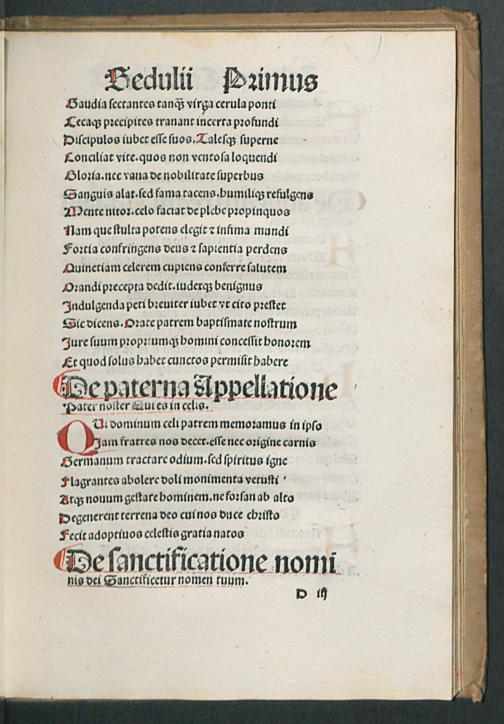 Sedulii Primus
Gaudia sectantes tanq̃ virga cerula ponti
Cecaq; precipites tranant incerta profundi
Discipulos iubet esse suos. Talesq; superne
Conciliat vite. quos non ventosa loquendi
Gloria. nec vana de nobilitate superbus
Sanguis alat. sed fama tacens. humiliq; refulgens
Mente nitor. celo faciat de plebe propinquos
Nam que stulta potens elegit ⁊ infima mundi
Fortia confringens deus ⁊ sapientia perdens
Quinetiam celerem cupiens conferre salutem
Orandi precepta dedit. iudexq; benignus
Indulgenda peti breuiter iubet vt cito prestet
Sic dicens. Orate patrem baptismate nostrum
Iure suum propriumq; homini concessit honorem
Et quod solus habet cunctos permisit habere
De paterna Appellatione
Pater noster Qui es in celis.
QUi dominum celi patrem memoramus in ipso
Iam fratres nos decet. esse nec origine carnis
Germanum tractare odium. sed spiritus igne
Flagrantes abolere doli monimenta vetusti
Atq; nouum gestare hominem. ne forsan ab alto
Degenerent terrena deo cui nos duce christo
Fecit adoptiuos celestis gratia natos
De sanctificatione nomi
nis dei Sanctificetur nomen tuum.
D iij